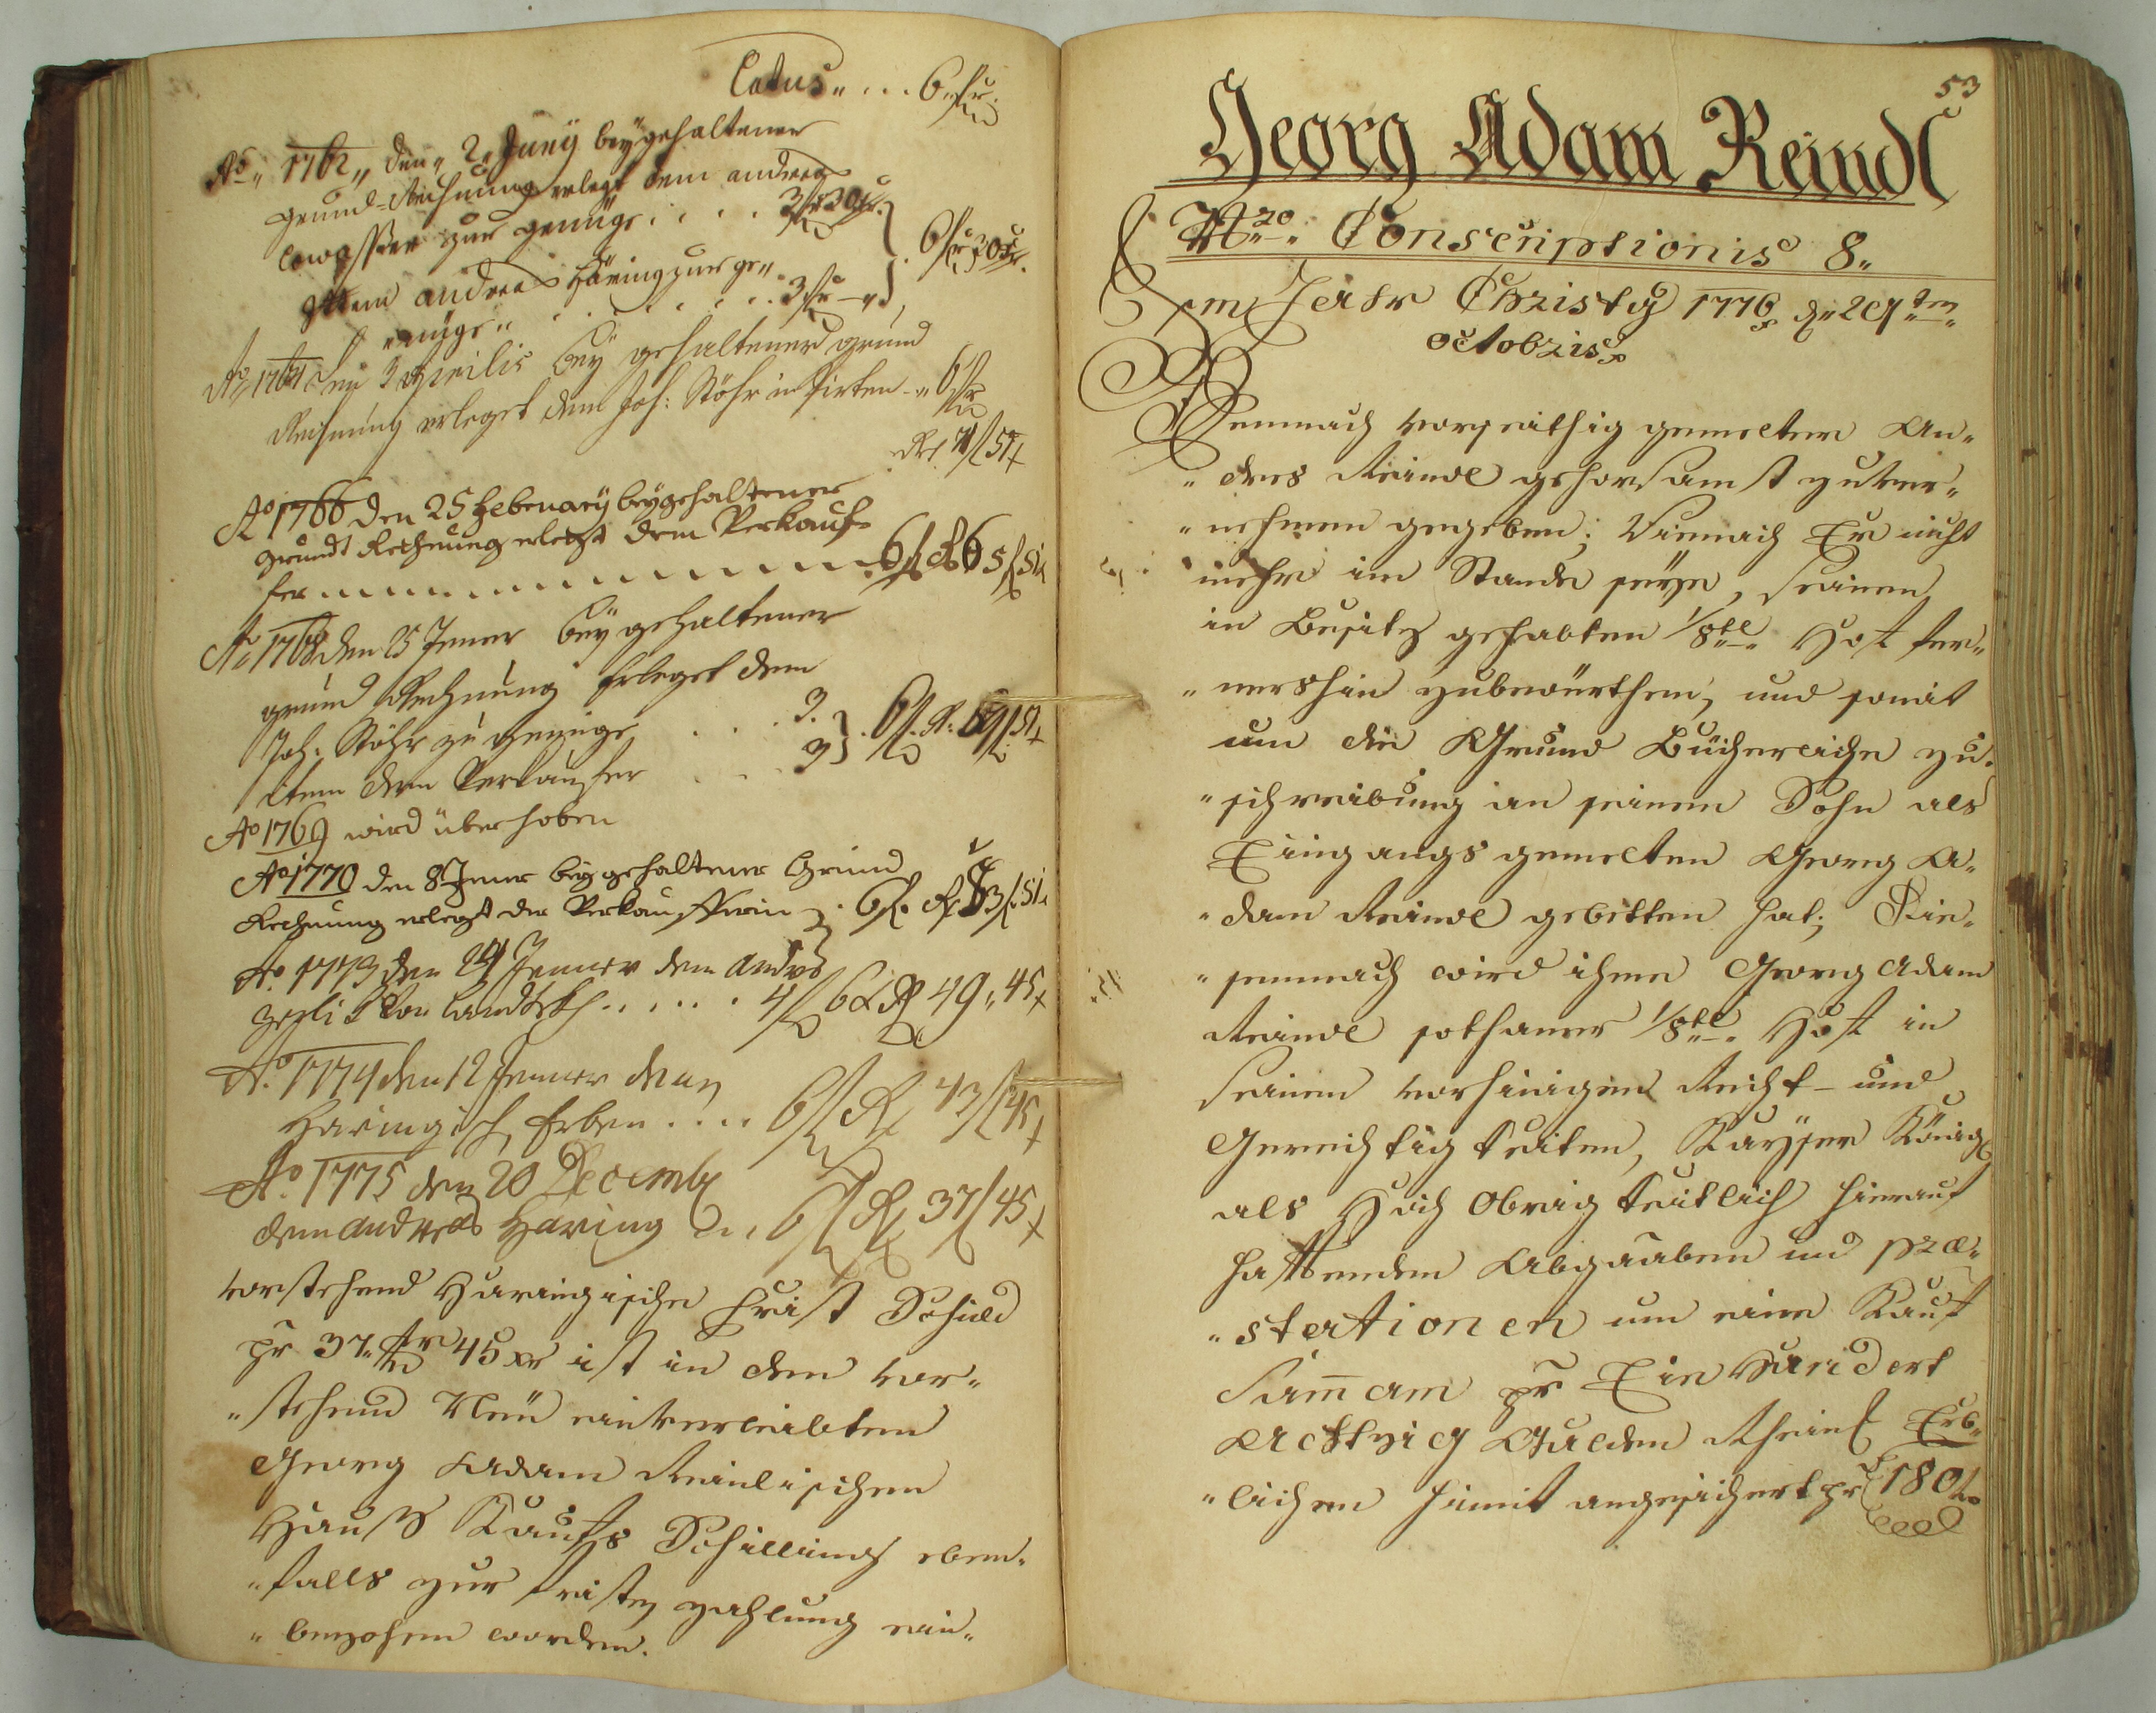 Latus „ . . . 6 fr
Ao „ 1762 „ den „ 2 „ Juny bey gehaltener
grund-Rechnung erlegt dem andrea
zur genüge . . . . 3 fr 30 xr. } . 6 fr 30 xr.
Item andrea Häring zur ge„
„nüge „ . . . . . . . 3 fr —
Ao 1764 den 3 Aprilis bey gehaltener grund
Rechnung erleget dem Joh: Stöhr in - „ 6 fr
Rst 71 f 51 x
Ao 1766 den 25 Februarÿ bey gehaltener
grundt Rechnung erlegt dem Verkauf-
fer . . . . . . . . . . 6 f R 65 f 51
Ao 1768 den 25 Jener bey gehaltener
grund Rechnung Erleget dem
Joh: Stöhr zu genüge . . . 3.
item dem Verkaufer . . . 3 } . 6 f. R. 59 f 51 x
Ao 1769 wird überhoben
Ao 1770 den 8 Jener bey gehaltener Grund
Rechnung erlegt der Verkaufferin . 6 f. R 53 f. 51
Ao. 1773 den 24 Jenner dem Andres
von . . . . . 4 f 6 x R 49 „ 45 x
Ao. 1774 den 12 Jenner denen
Haringisch Erben . . . . 6 f R 43 f 45 x
Ao. 1775 den 20 Decemb
dem andreas Haring 6 f R 37 f 45 x
vorstehend Haringische Frist Schuld
pr 37. fr 45 xr ist in dem vor„
„stehend Neü einverleibten
Georg Adam Reinlischen
Hauß Kaufs Schilling eben„
„falls zur fristen zahlung ein„
„bezohen worden.
53
Georg Adam Reindl
Nro. Conscriptionis 8„
Im Jahr Christÿ 1776 d„ 29ten
octobris
Demnach vorseithig gemelter An„
„dres Reindl gehorsamst zuver„
„nehmen gegeben; Dennach Er nicht
mehr im Stande seÿe, seinen
in Besitz gehabten 1/8tl. Hof fer„
„nershin zubewürthen, und somit
um die Grund Bücherliche zu„
„schreibung an seinem Sohn als
Eingangs gemelten Georg A„
„dam Reindl gebetten hat; Die„
„semnach wird ihme Georg Adam
Reindl sothaner 1/8tl. Hof in
seinen vorhinigen Recht- und
Gerechtigkeiten, Kaÿser König
als Hoch Obrigkeitlich hierauf
haftenden Abgaaben und præ„
„stationen um eine Kauf
Sumam pr Ein Hundert
Achtzig Gulden Rheinl Erb„
„lichen himit angesichert pr 180 f.